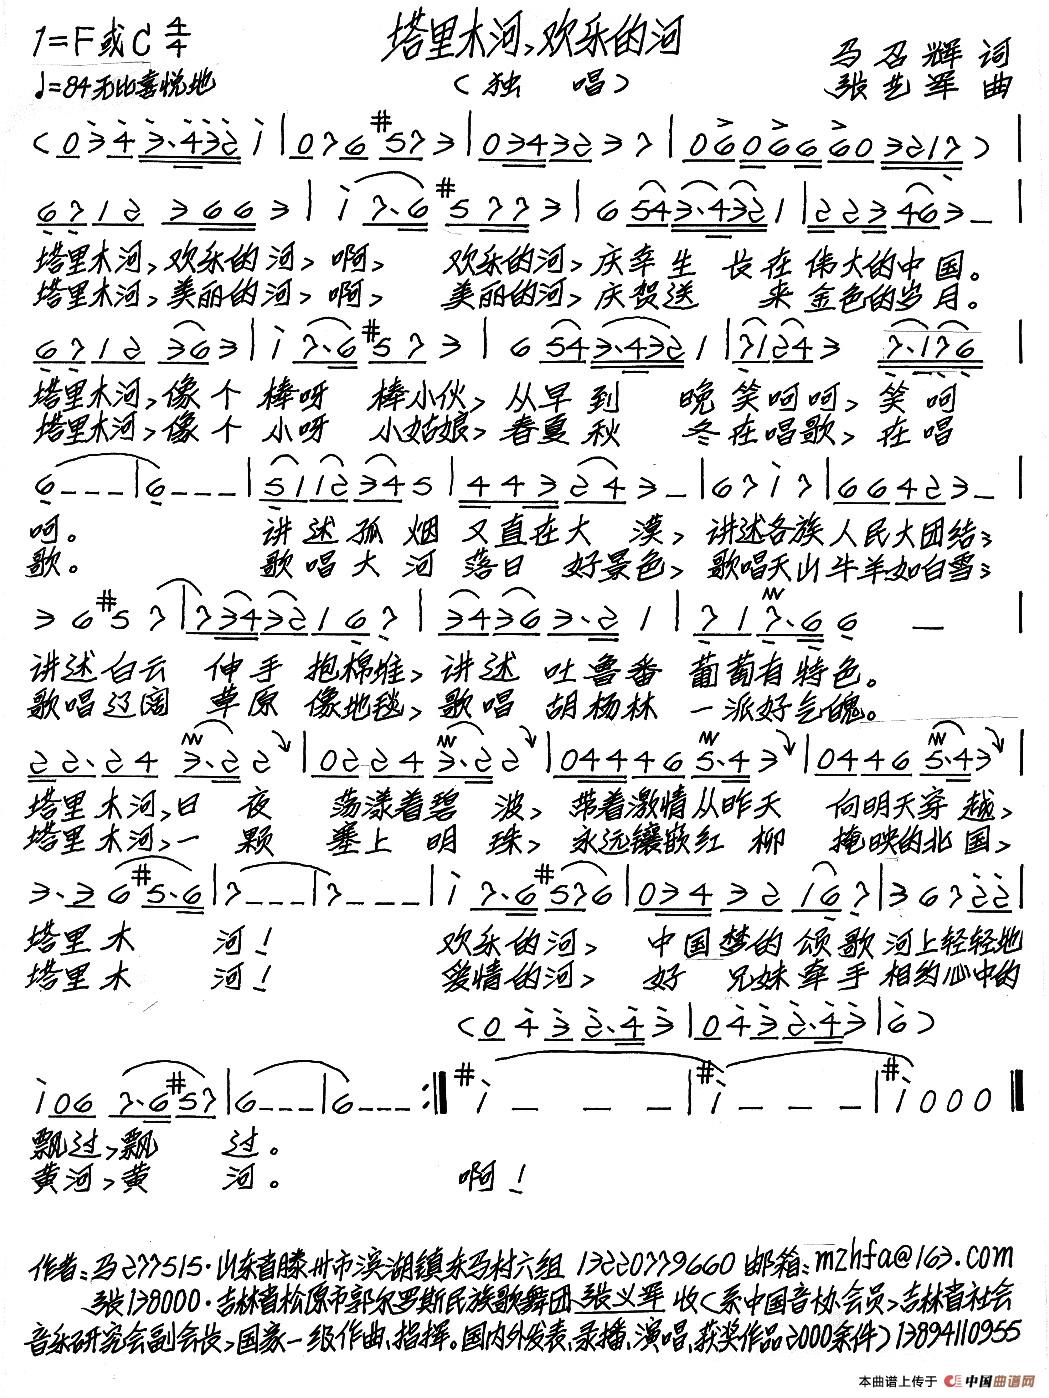 塔里木河,欢乐的河
1=F或C 4/4
♩=84 无比喜悦地
(独 唱)
马召辉 词
张艺军 曲
塔里木河,欢乐的河,啊, 欢乐的河,庆幸生 长在伟大的中国。
塔里木河,美丽的河,啊, 美丽的河,庆贺送 来金色的岁月。
塔里木河,像个棒呀 棒小伙,从早到 晚笑呵呵,笑呵
塔里木河,像个小呀 小姑娘,春夏秋 冬在唱歌,在唱
呵。 讲述孤烟 又直在大 漠,讲述各族人民大团结;
歌。 歌唱大河 落日 好景色,歌唱天山牛羊如白雪;
讲述白云 伸手 抱棉堆,讲述 吐鲁番 葡萄有特色。
歌唱辽阔 草原 像地毯,歌唱 胡杨林 一派好气魄。
塔里木河,日 夜 荡漾着碧 波,带着激情从昨天 向明天穿越,
塔里木河,一 颗 塞上明 珠,永远镶嵌红柳 掩映的北国,
塔里木 河! 欢乐的河, 中国梦的颂歌河上轻轻地
塔里木 河! 爱情的河, 好 兄妹牵手相约心中的
飘过,飘 过。
黄河,黄 河。 啊!
作者:马277515·山东省滕州市滨湖镇东马村六组 13220779660 邮箱:mzhfa@163.com
张138000·吉林省松原市郭尔罗斯民族歌舞团 张义军 收(系中国音协会员,吉林省社会
音乐研究会副会长,国家一级作曲、指挥。国内外发表、录播、演唱、获奖作品2000余件)13894110955
本曲谱上传于 中国曲谱网